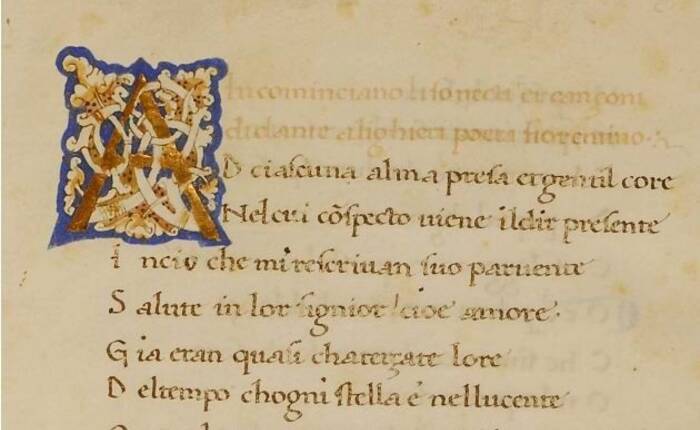 Incominciano li sonecti et canzoni
di dante alighieri poeta fiorentino
AD ciascuna alma presa et gentil core
Nel cui cōspecto uiene il dir presente
I ncio che mi rescriuan suo paruente
S alute in lor signior cioe amore.
G ia eran quasi cha terzate lore
D el tempo chogni stella e nellucente